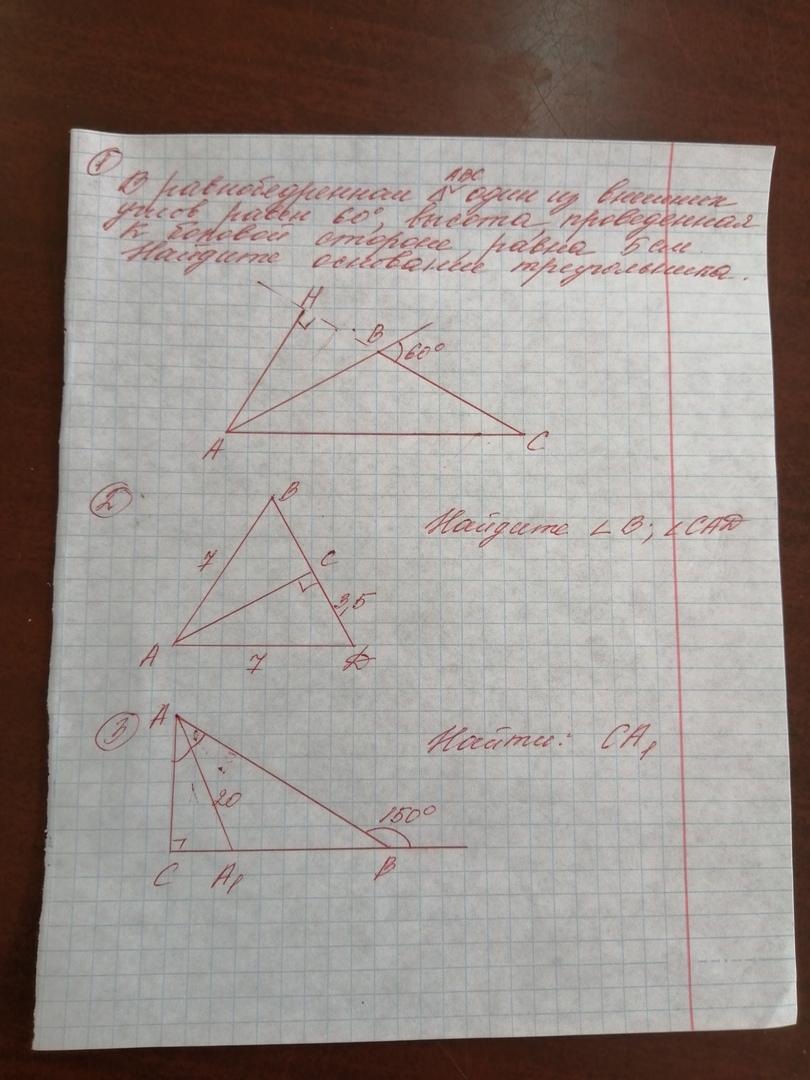 1
ABC
В равнобедренном Δ один из внешних
углов равен 60°, высота, проведенная
к боковой стороне, равна 5 см.
Найдите основание треугольника.
H
B
60°
A
C
2
B
Найдите ∠B; ∠CAD
7
C
3,5
A
7
D
3
A
Найти: CA₁
20
150°
C
A₁
B